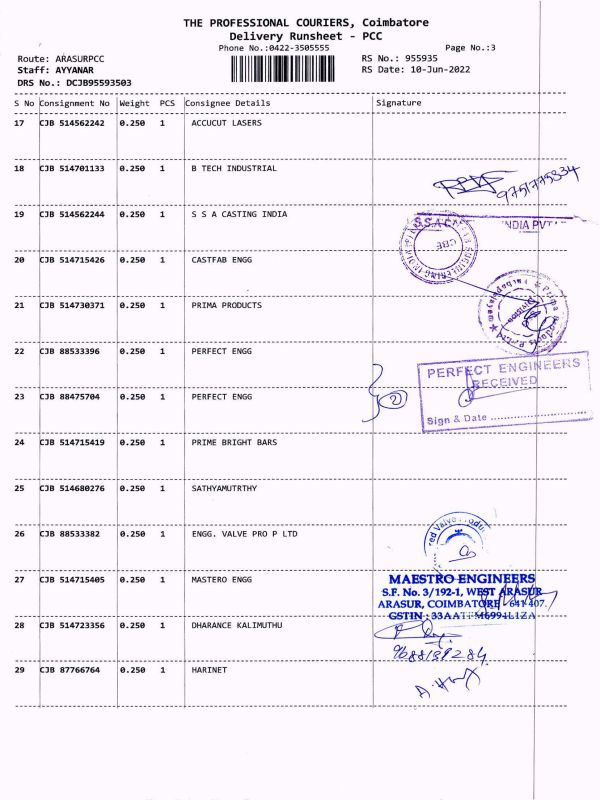 THE PROFESSIONAL COURIERS, Coimbatore
Delivery Runsheet - PCC
Phone No.:0422-3505555
Page No.:3
Route: ARASURPCC
RS No.: 955935
Staff: AYYANAR
RS Date: 10-Jun-2022
DRS No.: DCJB95593503
S No Consignment No Weight PCS Consignee Details Signature
17 CJB 514562242 0.250 1 ACCUCUT LASERS
18 CJB 514701133 0.250 1 B TECH INDUSTRIAL
9751775834
19 CJB 514562244 0.250 1 S S A CASTING INDIA
INDIA PVT
CBE
20 CJB 514715426 0.250 1 CASTFAB ENGG
21 CJB 514730371 0.250 1 PRIMA PRODUCTS
22 CJB 88533396 0.250 1 PERFECT ENGG
PERFECT ENGINEERS
RECEIVED
23 CJB 88475704 0.250 1 PERFECT ENGG
2
Sign & Date
24 CJB 514715419 0.250 1 PRIME BRIGHT BARS
25 CJB 514680276 0.250 1 SATHYAMUTRTHY
26 CJB 88533382 0.250 1 ENGG. VALVE PRO P LTD
27 CJB 514715405 0.250 1 MASTERO ENGG
MAESTRO ENGINEERS
S.F. No. 3/192-1, WEST ARASUR
ARASUR, COIMBATORE - 641 407.
28 CJB 514723356 0.250 1 DHARANCE KALIMUTHU
9688139284
29 CJB 87766764 0.250 1 HARINET